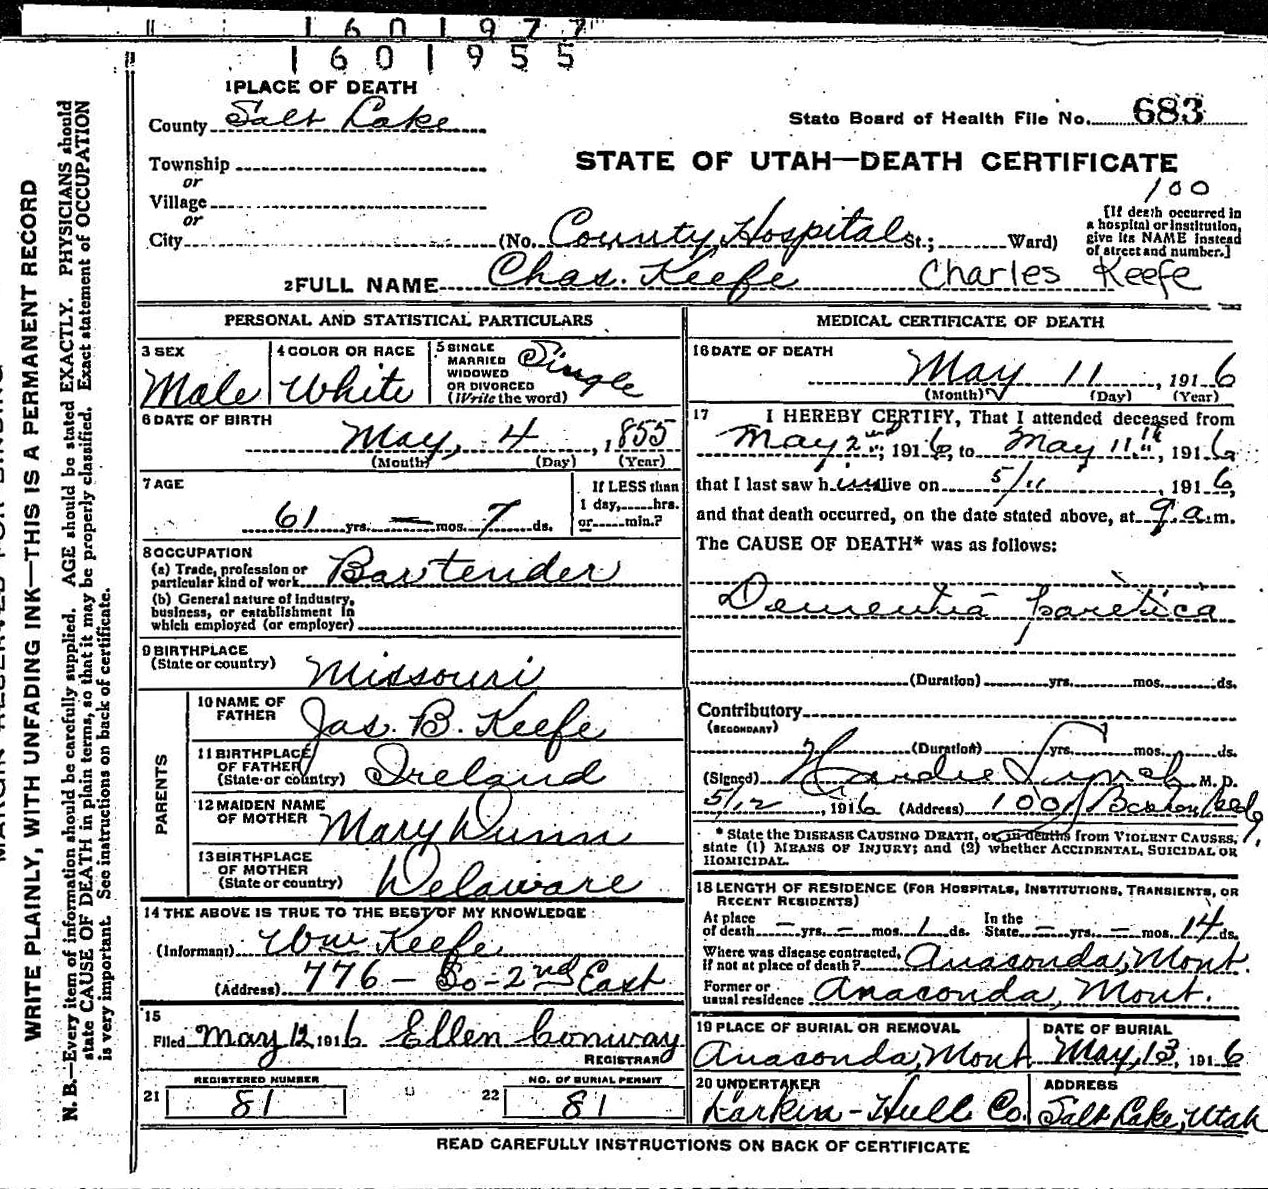 1601977
1601955
1 PLACE OF DEATH
County Salt Lake
State Board of Health File No. 683
Township
or
Village
or
City
STATE OF UTAH—DEATH CERTIFICATE
100
(No. County Hospital St.; Ward)
[If death occurred in
a hospital or institution,
give its NAME instead
of street and number.]
2 FULL NAME Chas. Keefe Charles Keefe
PERSONAL AND STATISTICAL PARTICULARS
3 SEX
Male
4 COLOR OR RACE
White
5 SINGLE
MARRIED
WIDOWED
OR DIVORCED
(Write the word)
Single
6 DATE OF BIRTH
May, 4, 1855
(Month) (Day) (Year)
7 AGE
61 yrs. — mos. 7 ds.
If LESS than
1 day, hrs.
or min.?
8 OCCUPATION
(a) Trade, profession or
particular kind of work Bartender
(b) General nature of industry,
business, or establishment in
which employed (or employer)
9 BIRTHPLACE
(State or country) Missouri
PARENTS
10 NAME OF
FATHER Jas. B. Keefe
11 BIRTHPLACE
OF FATHER
(State or country) Ireland
12 MAIDEN NAME
OF MOTHER Mary Dunn
13 BIRTHPLACE
OF MOTHER
(State or country) Delaware
14 THE ABOVE IS TRUE TO THE BEST OF MY KNOWLEDGE
(Informant) Wm Keefe
(Address) 776 – So - 2nd East
15
Filed May 12 1916 Ellen Conway
REGISTRAR
21 REGISTERED NUMBER 81
22 NO. OF BURIAL PERMIT 81
MEDICAL CERTIFICATE OF DEATH
16 DATE OF DEATH
May 11, 1916
(Month) (Day) (Year)
17 I HEREBY CERTIFY, That I attended deceased from
May 2nd, 1916, to May 11th, 1916,
that I last saw him alive on 5/11, 1916,
and that death occurred, on the date stated above, at 9 a.m.
The CAUSE OF DEATH* was as follows:
Dementia paretica
(Duration) yrs. mos. ds.
Contributory
(SECONDARY)
(Duration) yrs. mos. ds.
(Signed) Hardie Lynch M. D.
5/12, 1916 (Address) 1001 Boston Bldg
* State the DISEASE CAUSING DEATH, or in deaths from VIOLENT CAUSES,
state (1) MEANS OF INJURY; and (2) whether ACCIDENTAL, SUICIDAL OR
HOMICIDAL.
18 LENGTH OF RESIDENCE (FOR HOSPITALS, INSTITUTIONS, TRANSIENTS, OR
RECENT RESIDENTS)
At place
of death — yrs. — mos. 1 ds. In the
State — yrs. — mos. 14 ds.
Where was disease contracted,
if not at place of death? Anaconda, Mont.
Former or
usual residence Anaconda, Mont.
19 PLACE OF BURIAL OR REMOVAL
Anaconda, Mont
DATE OF BURIAL
May, 13, 1916
20 UNDERTAKER
Larkin-Hull Co.
ADDRESS
Salt Lake, Utah
READ CAREFULLY INSTRUCTIONS ON BACK OF CERTIFICATE
WRITE PLAINLY, WITH UNFADING INK—THIS IS A PERMANENT RECORD
N. B.—Every item of information should be carefully supplied. AGE should be stated EXACTLY. PHYSICIANS should
state CAUSE OF DEATH in plain terms, so that it may be properly classified. Exact statement of OCCUPATION
is very important. See instructions on back of certificate.